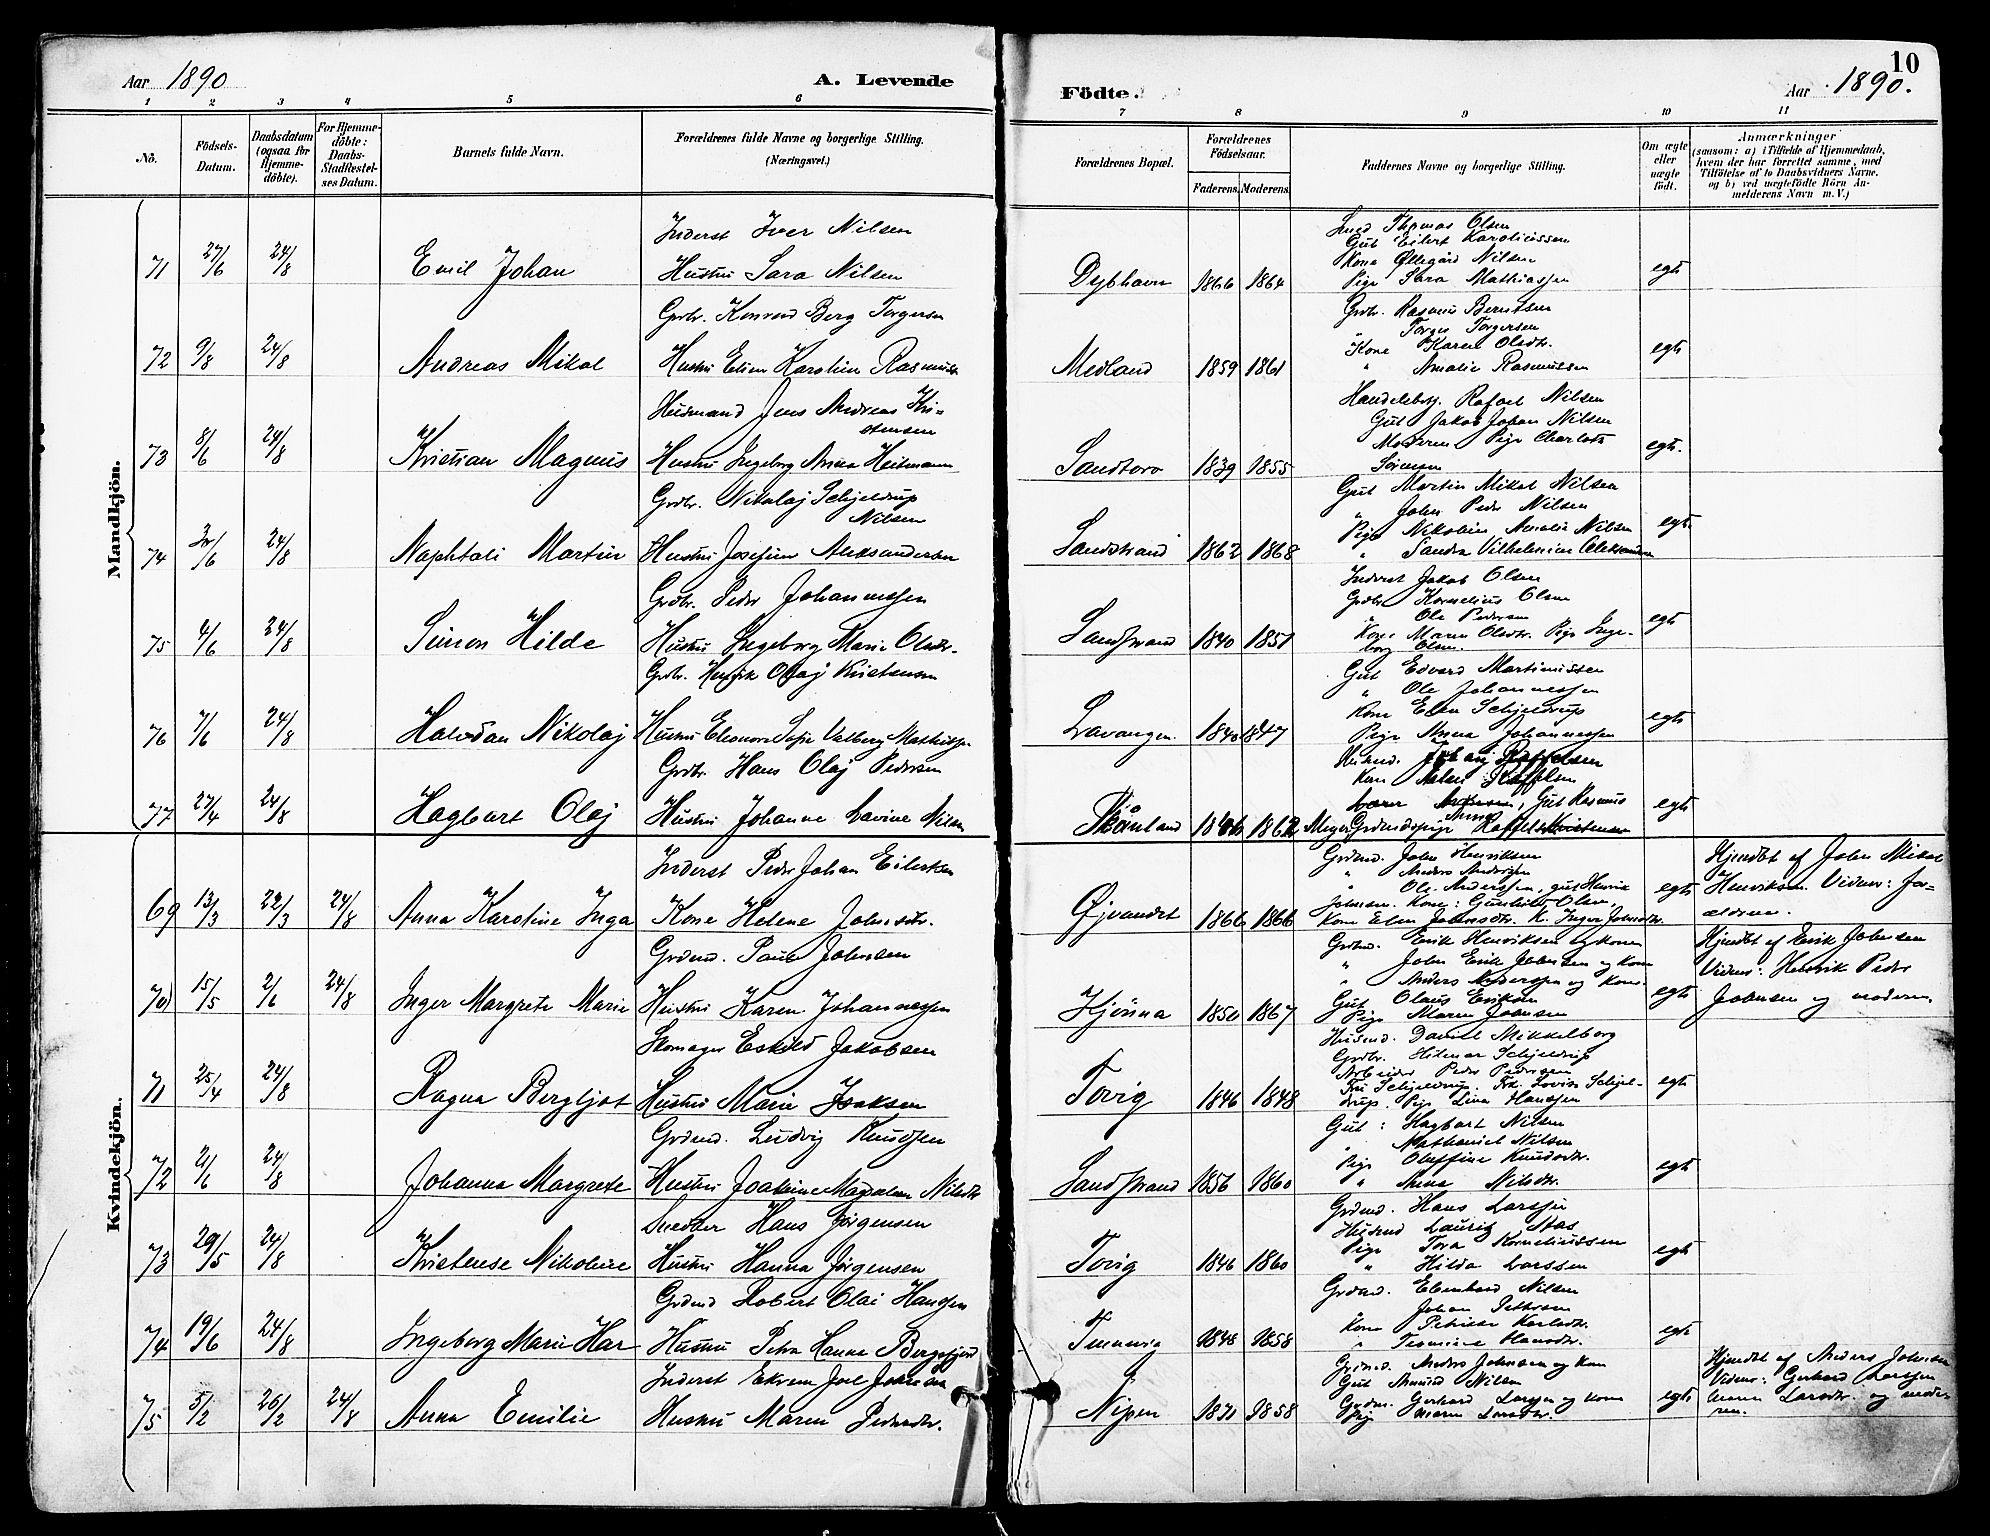 Aar 1890
A. Levende
Födte.
10
Aar 1890.
1 2 3 4 5 6 7 8 9 10 11
No.
Födsels-Datum.
Daabsdatum (ogsaa for Hjemme-döbte).
For Hjemme-döbte: Daabs-Stadfæstel-ses Datum.
Barnets fulde Navn.
Forældrenes fulde Navne og borgerlige Stilling. (Næringsvei.)
Forældrenes Bopæl.
Forældrenes Födselsaar.
Faderens. Moderens.
Faddernes Navne og borgerlige Stilling.
Om ægte eller uægte födt.
Anmærkninger
(saasom: a) i Tilfælde af Hjemmedaab,
hvem der har forrettet samme, med
Tilföielse af to Daabsvidners Navne.
og b) ved uægtefödte Börn An-
melderens Navn m. V.)
Mandkjön.
71 27/6 24/8 Emil Johan
Inderst Iver Nilsen
Hustru Sara Nilsen
Dybhavn 1866 1864
Smed Thomas Olsen
Gut Eilert Karoliussen
Kone Øllegård Nilsen
Pige Sara Mathiassen
egte
72 9/8 24/8 Andreas Mikal
Grdbr. Konrad Berg Torgersen
Hustru Elien Karoline Rasmuss
Medland 1859 1861
Grdbr. Rasmus Berntsen
Torger Torgersen
Kone Karen Olsdtr.
" Amalie Rasmussen
egte
73 8/6 24/8 Kristian Magnus
Husmand Jens Andreas Kri-
stensen
Hustru Ingeborg Anna Heitmann
Sandtorv 1839 1855
Handelsbetj. Rafael Nilsen
Gut Jakob Johan Nilsen
Moderen Pige Charlotte
Sörensen
egte.
74 24/8 Naphtali Martin
Grdbr. Nikolaj Schjeldrup
Nilsen
Hustru Josefine Aleksandersen
Sandstrand 1862 1868
Gut Martin Mikal Nilsen
" John Peder Nilsen
Pige Nikoline Amalie Nilsen
" Sandra Vilhelmine Aleksandersen
egte
75 4/6 24/8 Simon Hilde
Grdbr. Peder Johannessen
Hustru Ingeborg Marie Olsdtr.
Sandstrand 1840 1851
Inderst Jakob Olsen
Grdbr Kornelius Olsen
Ole Pedersen
Kone Maren Olsdtr. Pige Inge-
borg Olsen.
egte
76 7/6 24/8 Halvdan Nikolaj
Grdbr. Henrik Olaj Kristensen
Hustru Eleonora Sofie Valberg Mathisen
Lavangen. 1840 1847
Gut Edvard Martinussen
" Ole Johannessen
Kone Elen Schjeldrup
Pige Anna Johannessen
egte
77 27/4 24/8 Hagbart Olaj
Grdbr. Hans Olaj Pedersen
Hustru Johanne Lavine Nilsen
Skånland 1862
egte
Kvindekjön.
69 13/3 22/3 24/8 Anna Karoline Inga
Inderst Peder Johan Eilertsen
Kone Helene Johnsdtr.
Øjvandet 1866 1866
Grdmd. John Henriksen
" Anders Andersen
" Ole Anderssen, gut Henrik
Johnsen. Kone: Gunhild Olsen,
Kone Elen Johnsdtr. K. Inger Johnsdtr.
egte
Hjemdbt af John Mikal
Henriksen. Vidner: For-
ældrene.
70 15/5 2/6 24/8 Inger Margrete Marie
Grdmd. Paul Johnsen
Hustru Karen Johannessen
Hjönna 1850 1867
Grdmd. Erik Henriksen og kone
" John Erik Johnsen og Kone
" Anders Anderssen og Kone.
Gut Olaus Eriksen
Pige Maren Johnsen
egte
Hjemdbt af Erik Johnsen
Vidner: Henrik Peder
Johnsen og moderen.
71 25/4 24/8 Ragna Bergljot
Skomager Eskild Jakobsen
Hustru Marie Isaksen
Tovig 1846 1848
Husmd. Daniel Mikkelborg
Grdbr. Hilmar Schjeldrup
Arbeider Peder Pedersen
Fru Schjeldrup. Frk. Lovise Schjel-
drup. Pige Lina Hanssen
egte
72 2/6 24/8 Johanna Margrete
Grdmd. Ludvig Knudsen
Hustru Joakime Magdalena Nilsdtr
Sandstrand 1856 1860
Gut: Hagbart Nilsen
" Nathaniel Nilsen
Pige Oluffine Knudsdtr.
" Anna Nilsdtr.
egte
73 29/5 24/8 Kristense Nikoline
Snedker Hans Jörgensen
Hustru Hanna Jörgensen
Tovig 1846 1860
Grdmd. Hans Larssen
Husmd Lauritz Aas
Pige Tora Korneliussen
" Hilda Larssen
egte
74 19/6 24/8 Ingeborg Marie Har
Grdmd Robert Olai Hanssen
Hustru Petra Hanna Bergsfjord
1848 1858
Grdmd. Edenhard Nilsen
Johan Pettersen
Kone Petrikke Karlsdtr.
" Hansdtr.
egte
75 5/2 26/2 24/8 Anna Emilie
Inderst Joel Johnsen
Hustru Maren Pedersdtr.
Nipen 1858
Grdmd. Anders Johnsen og Kone
Gut Amund Nilsen
Grdmd. Gerhard Larssen og kone
Pig Maren Larsdtr.
egte
Hjemdbt af Anders Johnsen
Vidner: Gerhard Larssen
Maren Larsdtr. og mode-
ren.